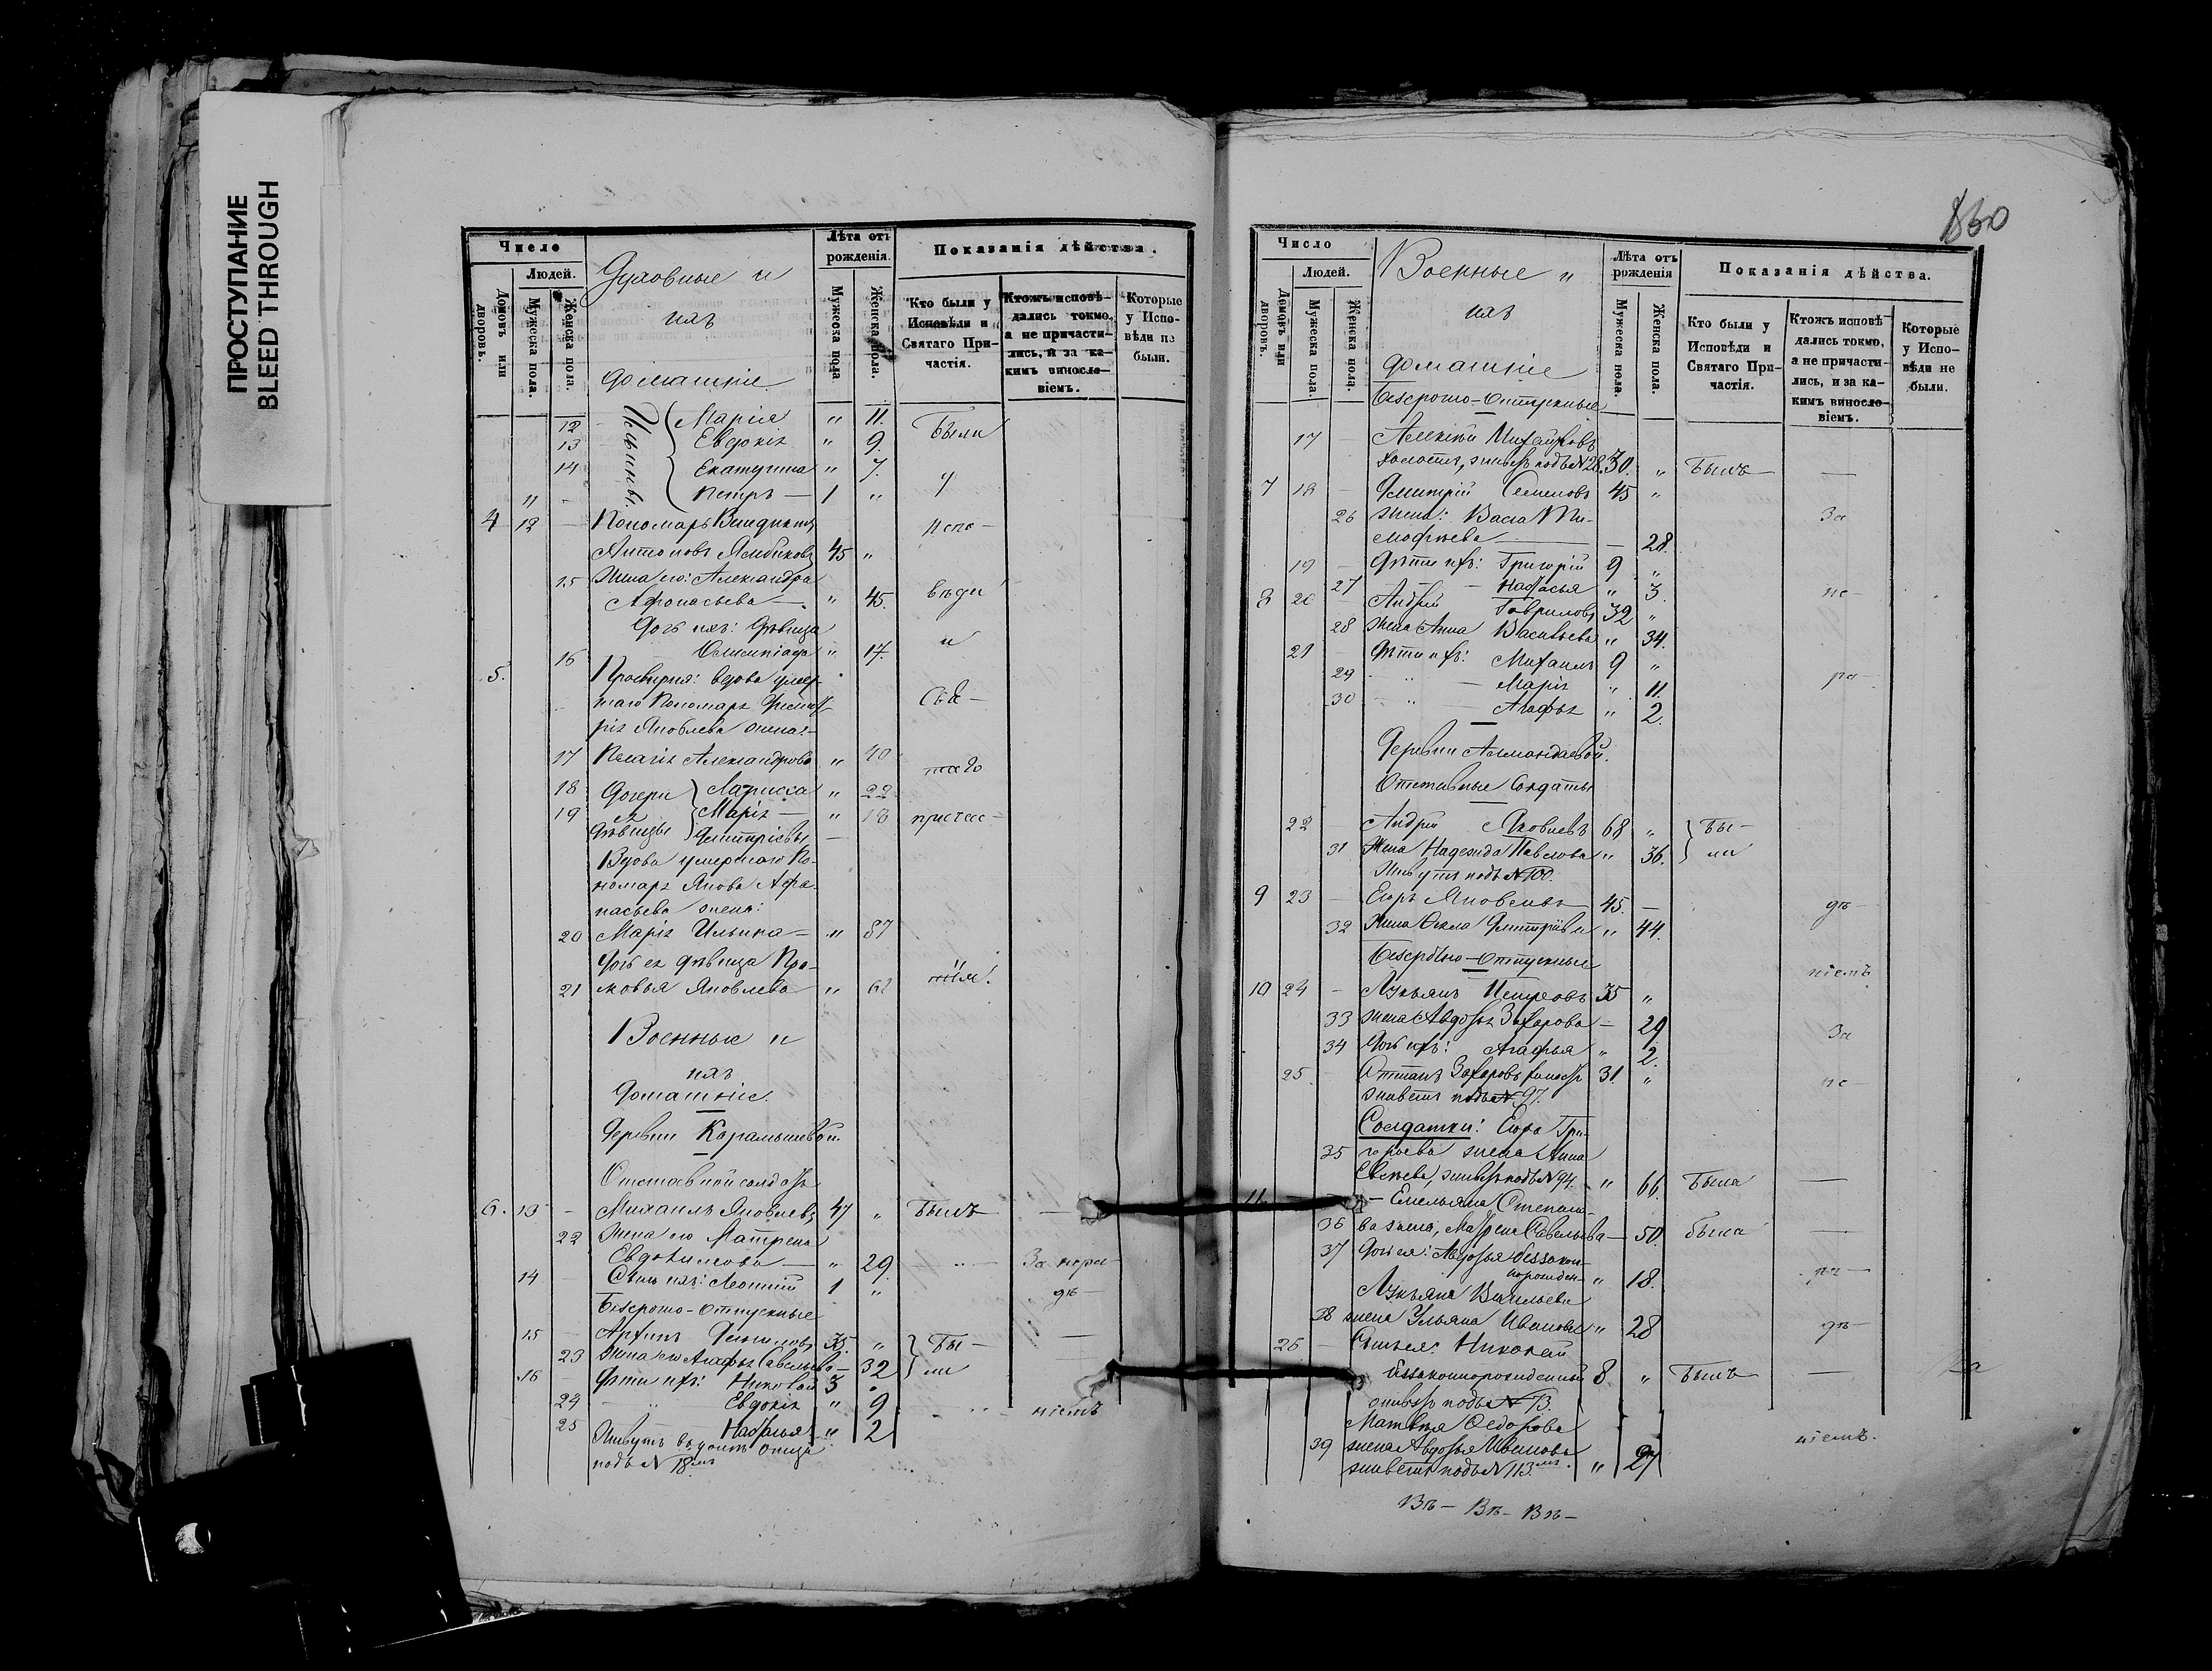 ПРОСТУПАНИЕ
BLEED THROUGH
Число
Людей.
Домовъ или дворовъ.
Мужеска пола.
Женска пола.
Духовные и
ихъ
домашніе
Лѣта отъ рожденія.
Мужеска пола
Женска пола.
Показанія дѣйства.
Кто были у Исповѣди и Святаго Причастія.
Ктожъ исповѣдались токмо, а не причастились, и за какимъ винословіемъ.
Которые у Исповѣди не были.
12 Ильины Марія " 11. Были
13 Евдокія " 9.
14 Екатерина " 7. у
11 - Петръ — 1 "
4 12 — Пономарь Венедиктъ Испо-
Антоновъ 45 "
15 Жена его: Александра
Афонасьева — " 45. вѣди
Дочь ихъ: дѣвица
16 Олимпіада " 17. и
5. Просвирня: вдова умер-
шаго Пономаря Димит- Свя-
рія Яковлева жена:
17 Пелагія Александрова " 40 таго
18 Дочери Ларисса " 22
19 ея Марія — " 18 причас-
дѣвицы Димитріевы —
Вдова умершаго По-
номаря Якова Афа-
насьева жена:
20 Марія Ильина — " 87
Дочь ея дѣвица Пра-
21 сковья Яковлева " 62 тія.
Военные и
ихъ
Домашніе.
Деревни Карамышевой
Отставной солдатъ
6. 13 - Михаилъ Яковлевъ 47 " Былъ —
22 Жена его Матрена
Евдокимова — " 29 — " — За нера-
14 — Сынъ ихъ: Леонтій 1 " дѣ-
Безсрочно-отпускные
15 — Архипъ 35. " Бы- —
23 Жена его Агафья Савельева — 32 ли
16 — Дѣти ихъ: Николай 3 "
24 — " Евдокія " 9 " ніемъ
25 Настасья " 2
Живутъ въ домѣ отца
подъ № 18мъ
130
Число
Людей.
Домовъ или дворовъ.
Мужеска пола.
Женска пола.
Военные и
ихъ
домашніе
Лѣта отъ рожденія
Мужеска пола.
Женска пола.
Показанія дѣйства.
Кто были у Исповѣди и Святаго Причастія.
Ктожъ исповѣдались токмо, а не причастились, и за какимъ винословіемъ.
Которые у Исповѣди не были.
Безсрочно-Отпускные
17 — Алексѣй Михайловъ
холостъ, живетъ подъ № 28. 30. " Былъ —
7 18 — Дмитрій Семеновъ 45 "
26 жена: Васса Ти- За
мофѣева — 28.
19 — Дѣти ихъ: Григорій 9 "
27 — Настасья " 3. не-
8 20 Андрей Гавриловъ 32 "
28 жена Анна Васильева " 34.
21 — Дѣти ихъ: Михаилъ 9 "
29 " — Марія " 11. ра-
30 " — Агафья " 2.
Отставные Солдаты
22 — Андрей Яковлевъ 68 " Бы-
31 Жена Надежда Павлова " 36. ли
Живутъ подъ № 100.
9 23 — Егоръ Яковлевъ 45. — дѣ-
32 Жена Ѳекла Дмитріева " 44.
Безсрочно-Отпускные ніемъ
10 24 — Лукьянъ Петровъ 35 "
33 жена Авдотья Захарова — 29 За
34 Дочь ихъ: Агафья " 2.
25. Захаровъ холостъ 31. " не
живетъ подъ № 97.
Солдатки: Егора Гри-
35 горьева жена Анна
живетъ подъ № 94. — " 66. Была —
11. — Емельяна Степано-
36 ва жена, Матрена Савельева — 50. была —
37 Дочь ея: Авдотья беззакон-
норожден- " 18. ра-
Лукьяна Васильева
38 жена Ульяна Иванова " 28 дѣ-
26 — Сынъ ея: Николай
беззаконнорожденный 8 " Былъ —
живетъ подъ № 13.
Матвѣя Ѳедорова
39 жена Авдотья Иванова ніемъ.
живетъ подъ № 113мъ. " 27
Въ — Въ — Въ —